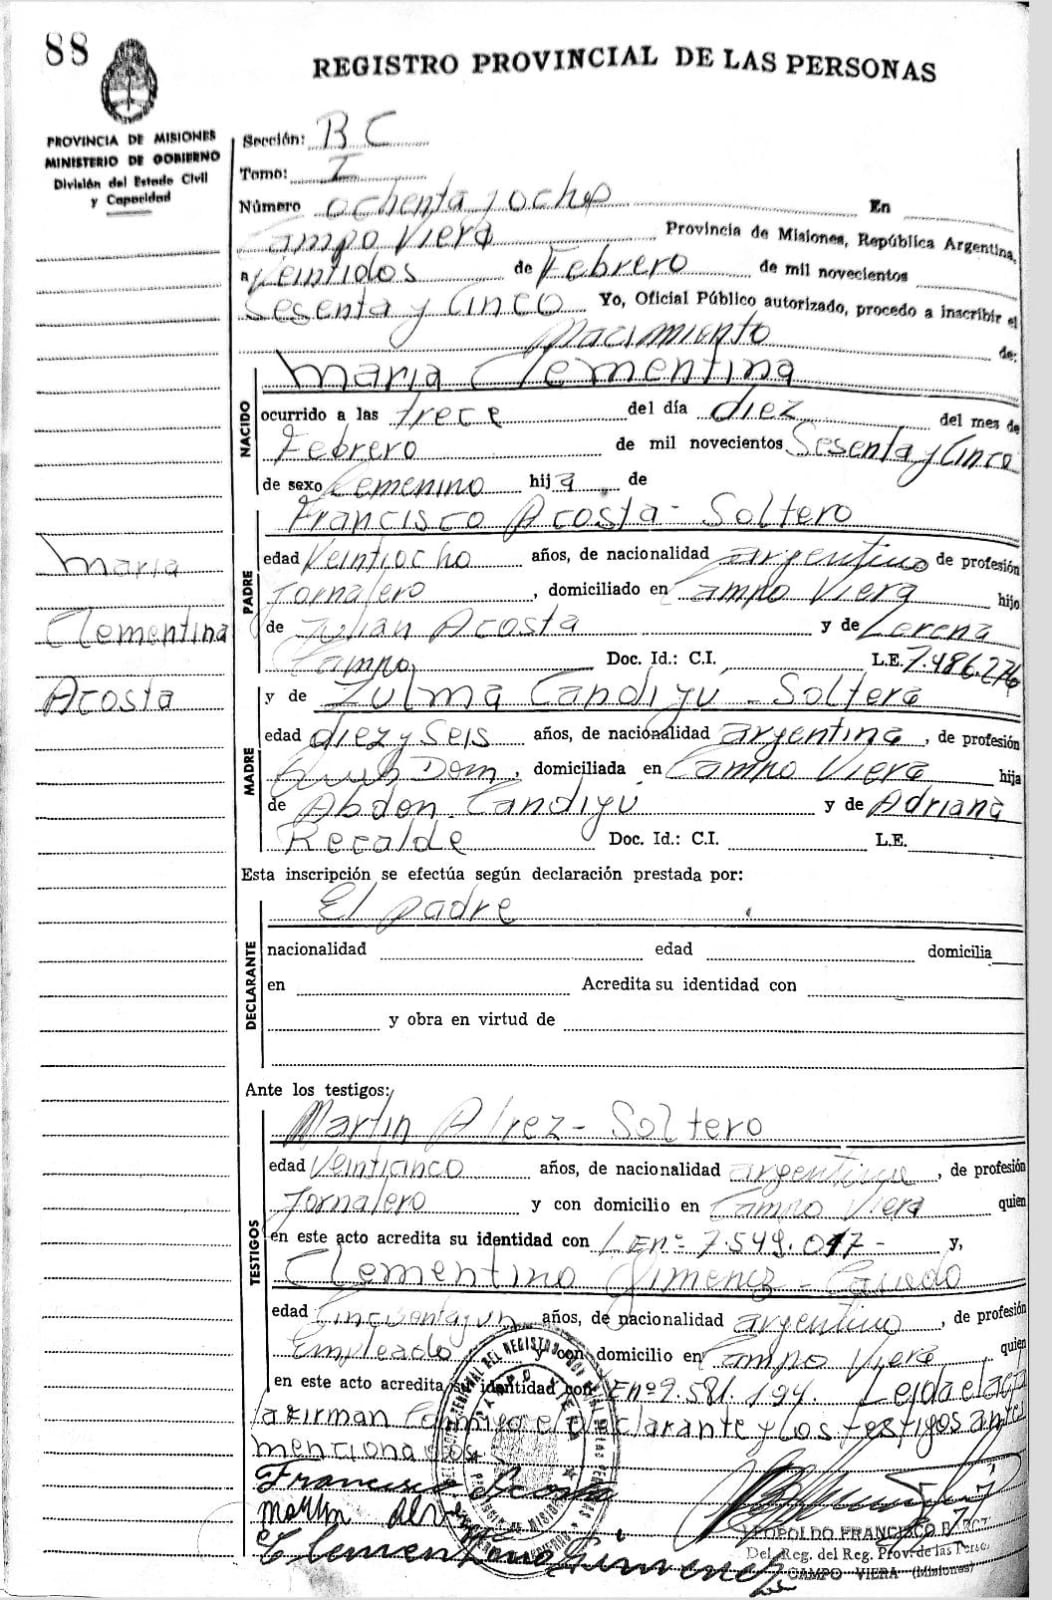 88
REGISTRO PROVINCIAL DE LAS PERSONAS
PROVINCIA DE MISIONES
MINISTERIO DE GOBIERNO
División del Estado Civil
y Capacidad
Sección: BC
Tomo: I
Número ochenta y ocho En
Campo Viera Provincia de Misiones, República Argentina,
a Veintidos de Febrero de mil novecientos
Sesenta y Cinco Yo, Oficial Público autorizado, procedo a inscribir el
Nacimiento de:
Maria Clementina
NACIDO
ocurrido a las trece del día diez del mes de
Febrero de mil novecientos Sesenta y Cinco
de sexo Femenino hija de
Francisco Acosta - Soltero
PADRE
edad Veintiocho años, de nacionalidad argentino de profesión
Jornalero, domiciliado en Campo Viera hijo
de Julian Acosta y de Lorena
Campo Doc. Id.: C.I. L.E. 7.486.276
Maria
Clementina
Acosta
y de Zulma Candiyú - Soltera
MADRE
edad diez y seis años, de nacionalidad argentina, de profesión
Dom., domiciliada en Campo Viera hija
de Abdon Candiyú y de Adriana
Recalde Doc. Id.: C.I. L.E.
Esta inscripción se efectúa según declaración prestada por:
El padre
DECLARANTE
nacionalidad edad domicilia
en Acredita su identidad con
y obra en virtud de
Ante los testigos:
Martin Alrez - Soltero
TESTIGOS
edad Veinticinco años, de nacionalidad argentino, de profesión
Jornalero y con domicilio en Campo Viera quien
en este acto acredita su identidad con L.E.nº 7.549.017 - y,
Clementino Gimenez - Casado
edad Cincuenta y un años, de nacionalidad argentino, de profesión
Empleado y con domicilio en Campo Viera quien
en este acto acredita su identidad con L.E nº 2.581.194. Leida el acta
la firman conmigo el declarante y los testigos antes
mencionados
Francisco Acosta
Martin Alrez
Clementino Gimenez
LEOPOLDO FRANCISCO
Del. Reg. del Reg. Prov. de las Perso.
CAMPO VIERA (Misiones)